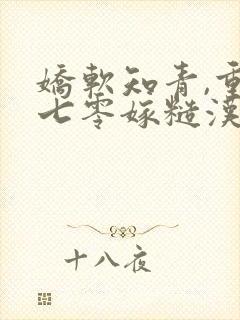 嬌軟知青,重
七零嫁糙漢
十八夜